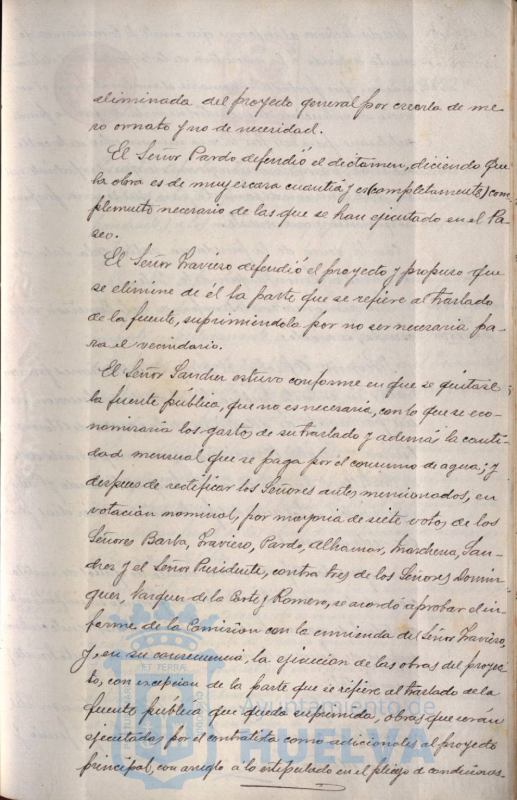 eliminada del proyecto general por creerla de me
ro ornato y no de necesidad.
El Señor Pardo defendió el dictamen, diciendo que
la obra es de muy escasa cuantía y es (completamente) com
plemento necesario de las que se han ejecutado en el Pa-
seo.
El Señor Travieso defendió el proyecto y propuso que
se elimine de él la parte que se refiere al traslado
de la fuente, suprimiéndola por no ser necesaria pa-
ra el vecindario.
El Señor Sanchez estuvo conforme en que se quitase
la fuente pública, que no es necesaria, con lo que se eco-
nomizaría los gastos de su traslado y además la canti-
dad mensual que se paga por el consumo de agua; y
despues de rectificar los Señores antes mencionados, en
votación nominal, por mayoria de siete votos de los
Señores Barba, Travieso, Pardo, Alhamar, Marchena, San-
y el Señor Presidente, contra tres de los Señores Domin-
guez, Vazquez de la Corte y Romero, se acordó aprobar el in-
forme de la Comision con la enmienda del Señor Travieso,
y, en su consecuencia, la ejecucion de las obras del proyec-
to, con excepcion de la parte que se refiere al traslado de la
fuente pública que queda suprimida, obras que serán
ejecutadas por el contratista como adicionales al proyecto
principal, con arreglo á lo estipulado en el pliego de condiciones.-
Ayuntamiento de
HUELVA